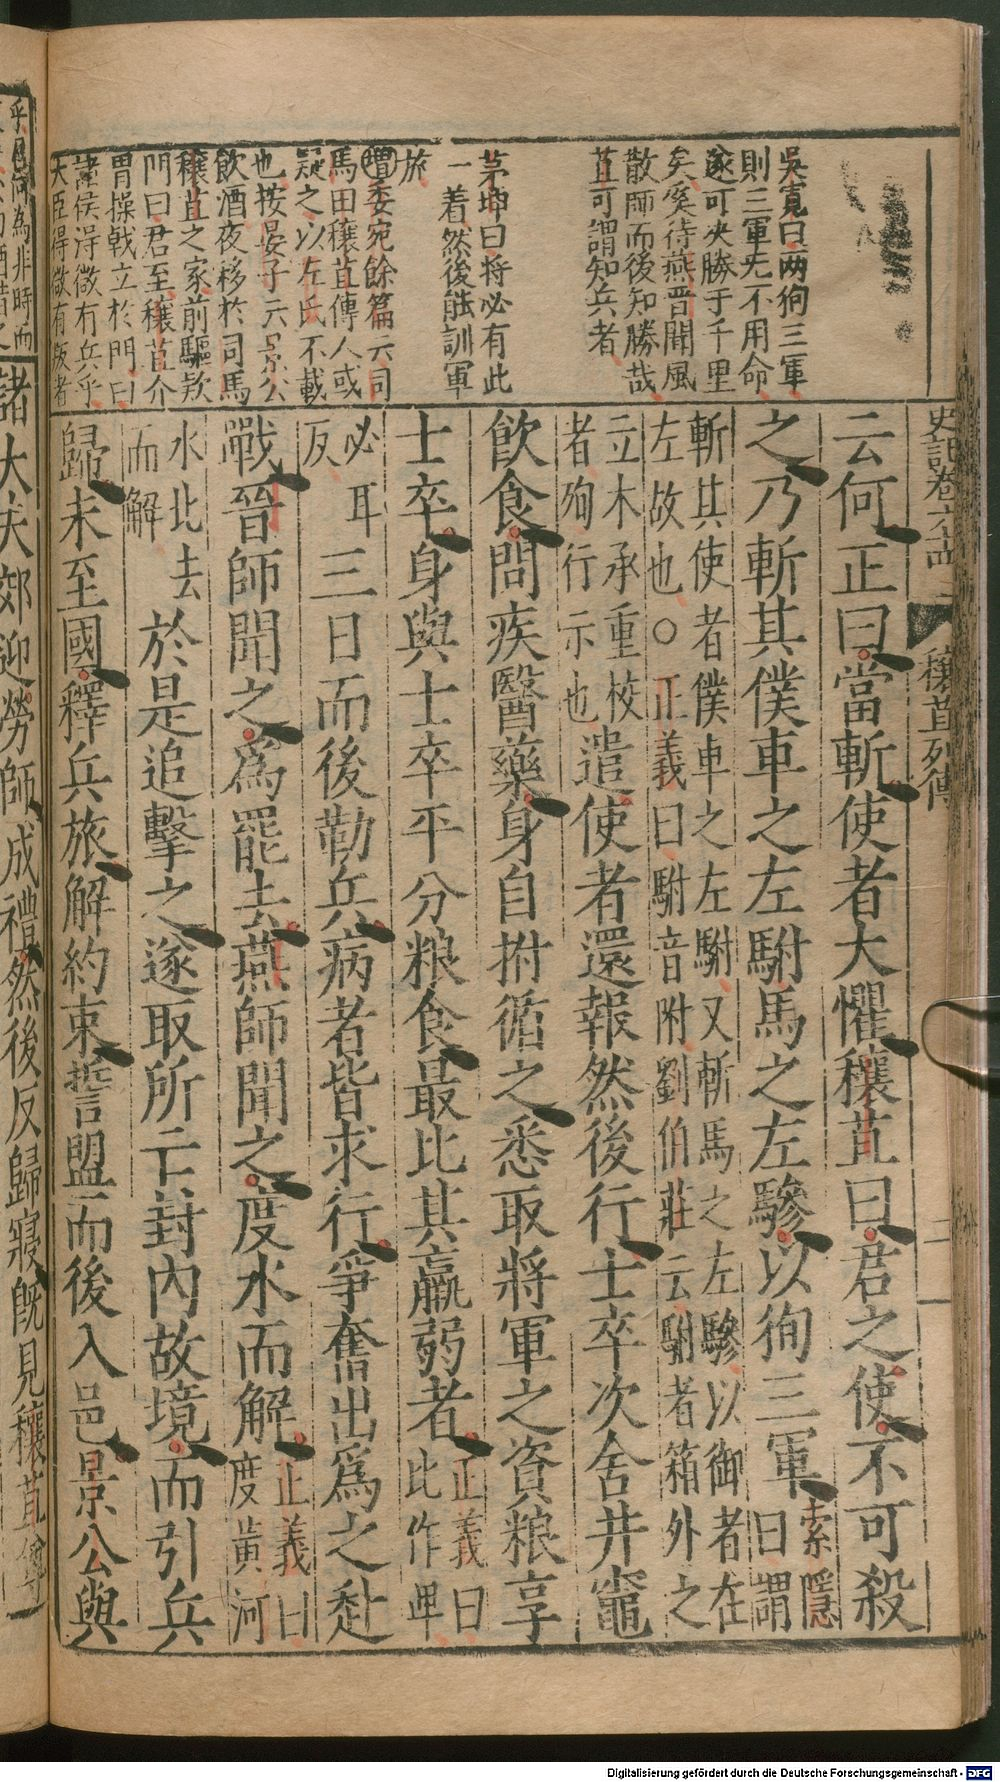 史記卷六十四 穰苴列傳 二
吳寬曰兩徇三軍
則三軍无不用命
遂可决勝于千里
矣奚待燕晉聞風
散師而後知勝哉
苴可謂知兵者
茅坤曰將必有此
一着然後能訓軍
旅
增委宛餘篇云司
馬田穰苴傳人或
疑之以左氏不載
也按晏子云景公
飲酒夜移於司馬
穰苴之家前驅欵
門曰君至穰苴介
冑操戟立於門曰
諸侯得微有兵乎
大臣得微有叛者
云何正曰當斬使者大懼穰苴曰君之使不可殺
之乃斬其僕車之左駙馬之左驂以徇三軍索隱曰謂
斬其使者僕車之左駙又斬馬之左驂以御者在
左故也○正義曰駙音附劉伯莊云駙者箱外之
立木承重校者殉行示也遣使者還報然後行士卒次舍井竈
飲食問疾醫藥身自拊循之悉取將軍之資粮享
士卒身與士卒平分粮食最比其羸弱者正義曰比作𤰞
必耳反三日而後勒兵病者皆求行爭奮出爲之赴
戰晉師聞之爲罷去燕師聞之度水而解正義曰度黄河
水北去而解於是追擊之遂取所亡封內故境而引兵
歸未至國釋兵旅解約束誓盟而後入邑景公與
乎君何爲非時而
諸大夫郊迎勞師成禮然後反歸寢旣見穰苴尊
Digitalisierung gefördert durch die Deutsche Forschungsgemeinschaft - DFG